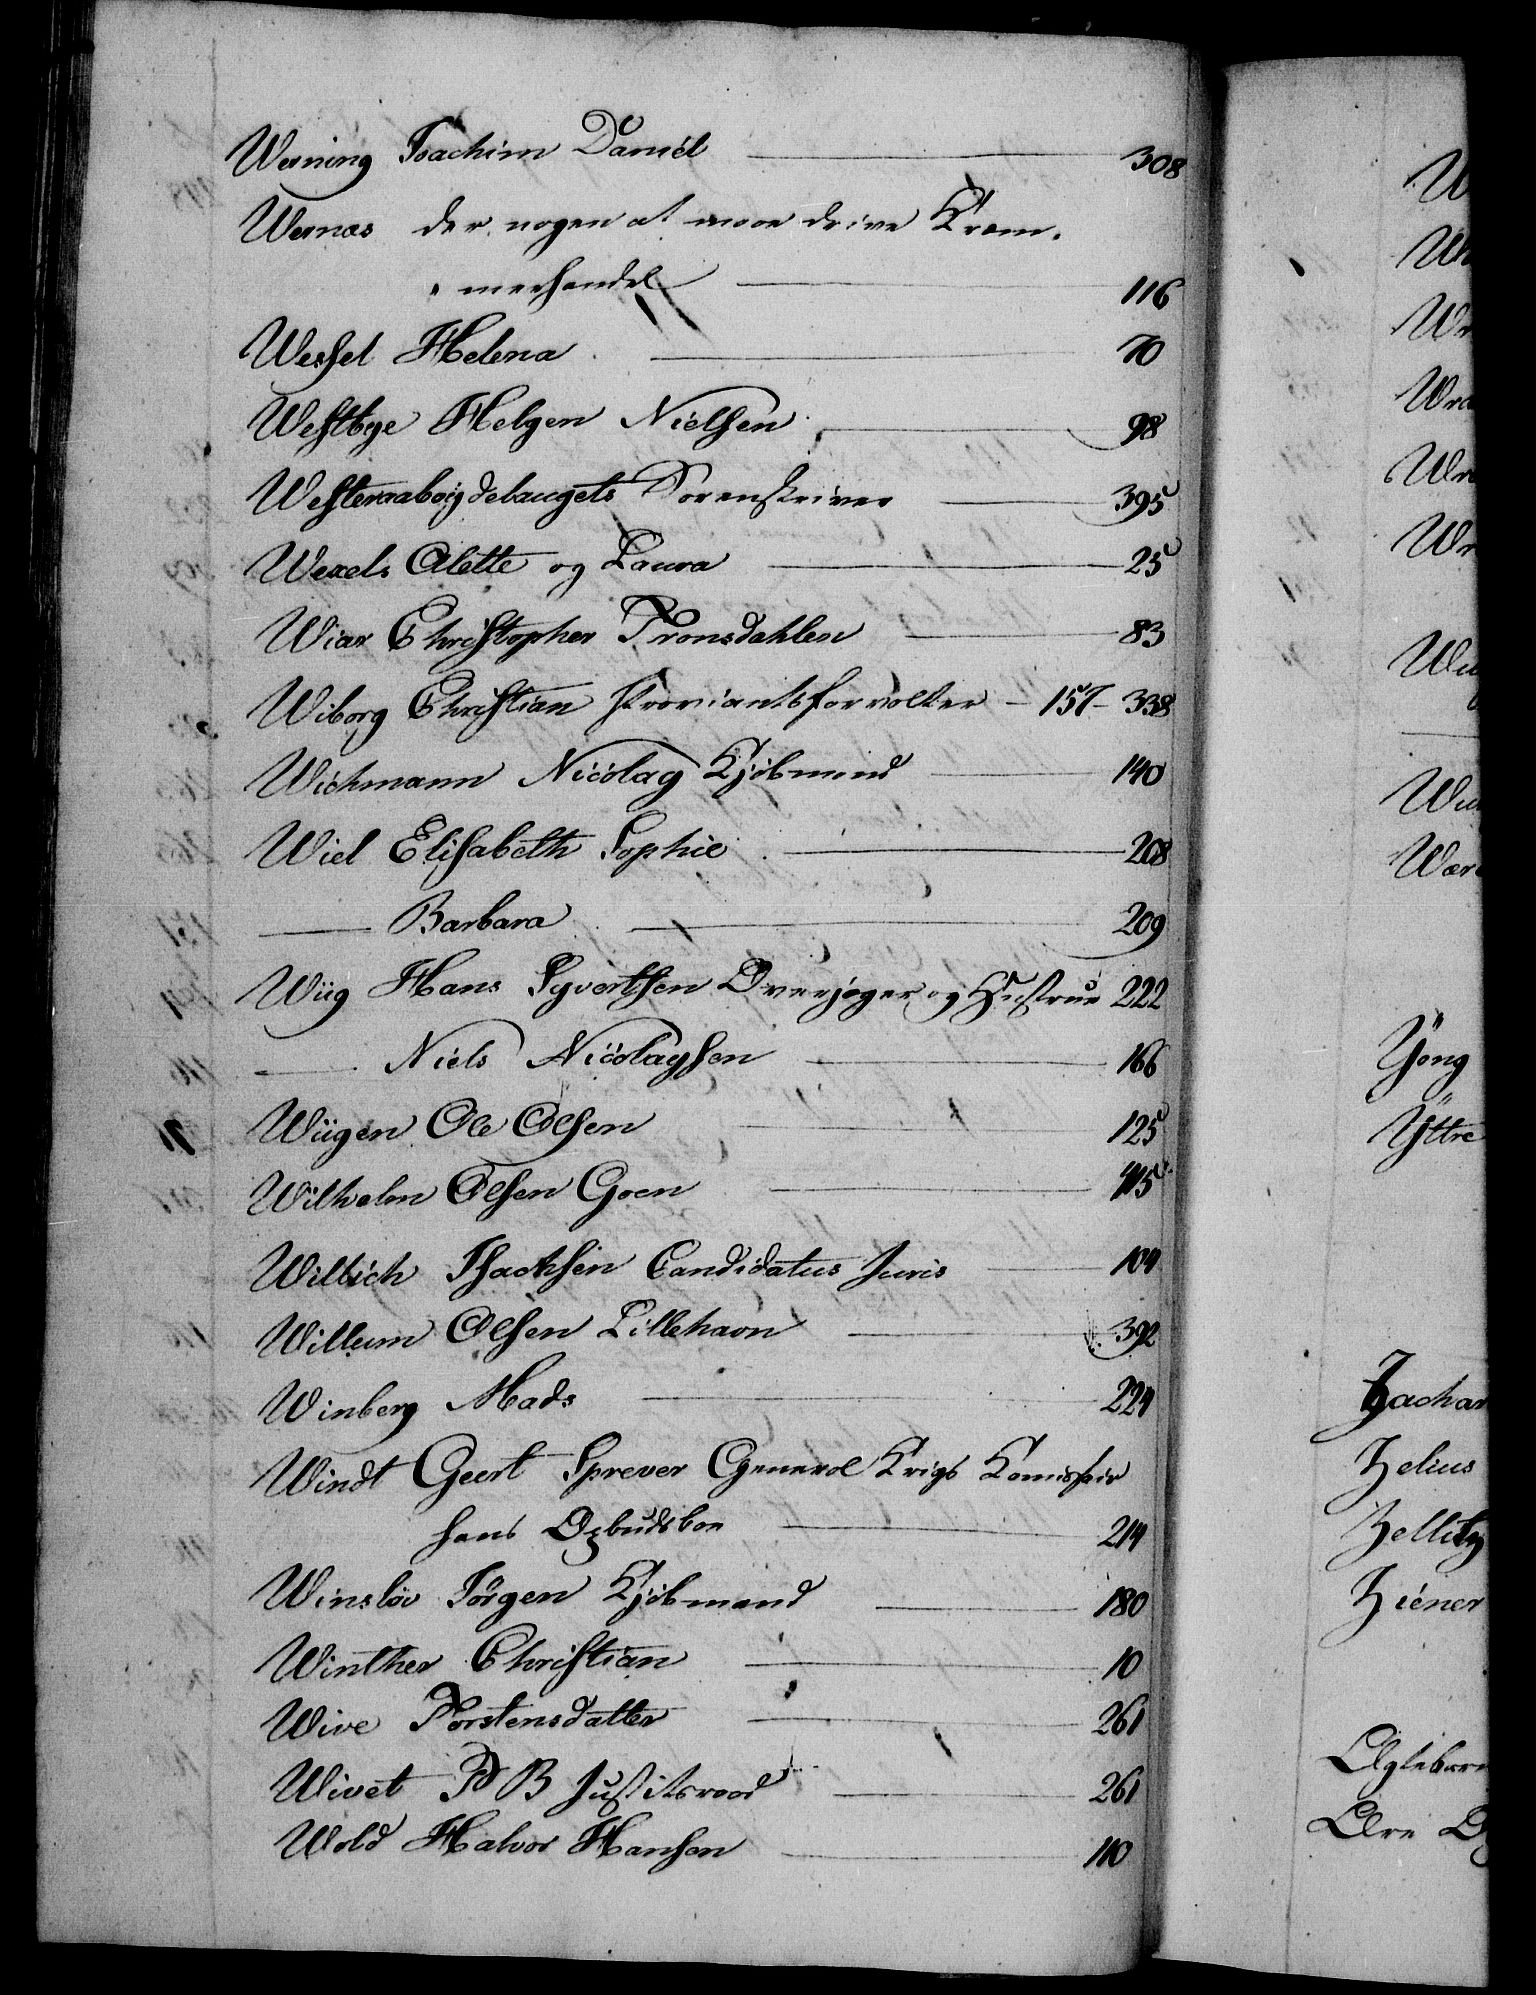 Werning Joachim Daniel 308
Wernæs der nogen at maae drive Kræm-
merhandel 116
Wessel Helena 70
Westbye Helgen Nielsen 98
Westeraaboigdelaugets Sorenskriver 395
Wexels Alette og Laura 25
Wiar Christopher Tronsdahlen 83
Wiborg Christian Proviantsforvalter - 157 - 338
Wichmann Nicolay Kjøbmand 140
Wiel Elisabeth Sophie 208
—— Barbara 209
Wiig Hans Syvertsen Overjæger og Hustrue 222
—— Niels Nicolaysen 166
Wiigen Ole Olsen 125
Wilhelm Olsen Goen 115
Willich Isachsen Candidatus Juris 104
Willum Olsen Lillehavn 392
Winberg Mads 224
Windt Geert Sprever General Krigs Komissair
hans Opbudsboe 214
Winsløv Jørgen Kjøbmand 180
Winther Christian 10
Wive Torstensdatter 261
Wivet P B Justitsraad 261
Wold Halvor Hansen 110
Yong
Yttre
Zachar
Zelius
Zellitz
Ziener